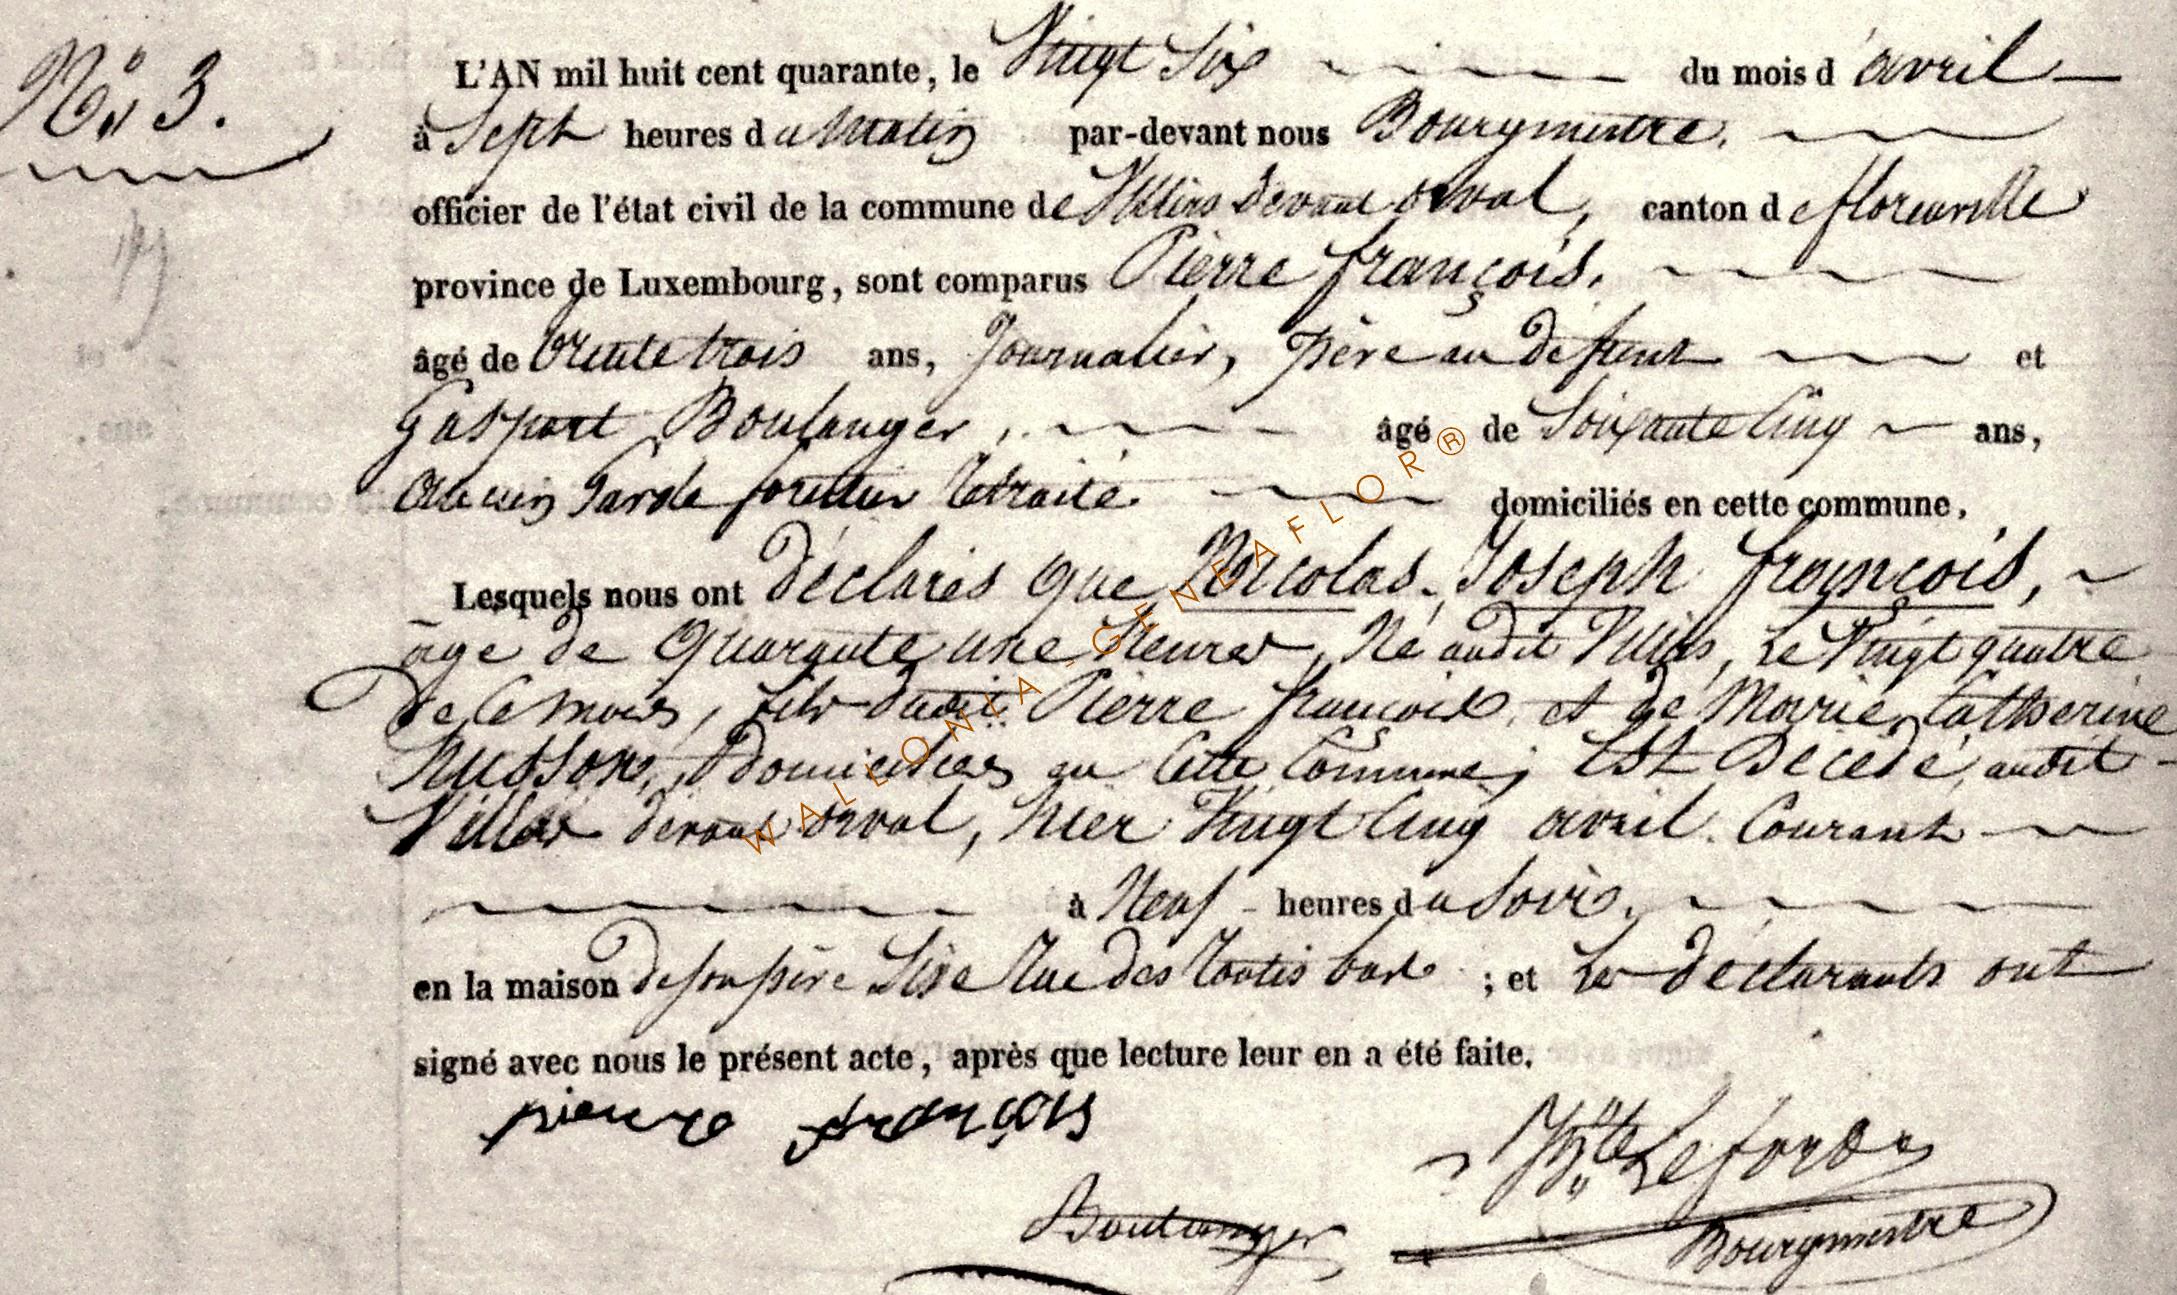 N° 3.
L'AN mil huit cent quarante, le Vingt Six du mois d'avril
à Sept heures du Matin par-devant nous Bourgmestre,
officier de l'état civil de la commune de Villers devant orval, canton de florenville
province de Luxembourg, sont comparus Pierre françois,
âgé de trente trois ans, Journalier, Père au défunt et
Gaspart Boulanger, âgé de Soixante Cinq ans,
ancien Garde forestier retraité domiciliés en cette commune,
Lesquels nous ont déclarés que Nicolas, Joseph françois,
âgé de Quarante une heures, Né audit Villers, Le Vingt quatre
de Ce mois, fils dudit Pierre françois, et de Marie, Catherine
husson, Domiciliés en Cette Commune; Est Décédé, audit
Villers devant orval, hier Vingt Cinq avril Courant
à Neuf heures du Soir,
en la maison de son père Sise Rue des bas ; et Les déclarants ont
signé avec nous le présent acte, après que lecture leur en a été faite.
pierre françois
Boulanger
Bourgmestre
WALLONIA-GENEAFLOR®